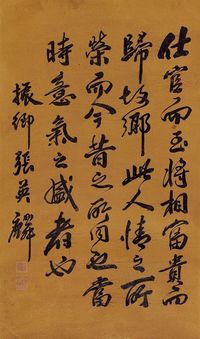 仕宦而至將相富貴而
歸故鄉此人情之所
榮而今昔之所同也當
時意氣之盛者也
振卿張英麟